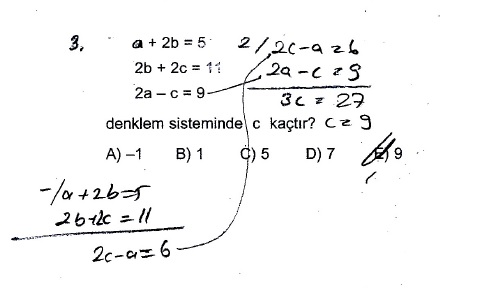 3.
a + 2b = 5
2b + 2c = 11
2a – c = 9
2/ 2c-a=6
2a-c=9
3c = 27
denklem sisteminde c kaçtır? c=9
A) –1 B) 1 C) 5 D) 7 E) 9
-/a+2b=5
2b+2c=11
2c-a=6